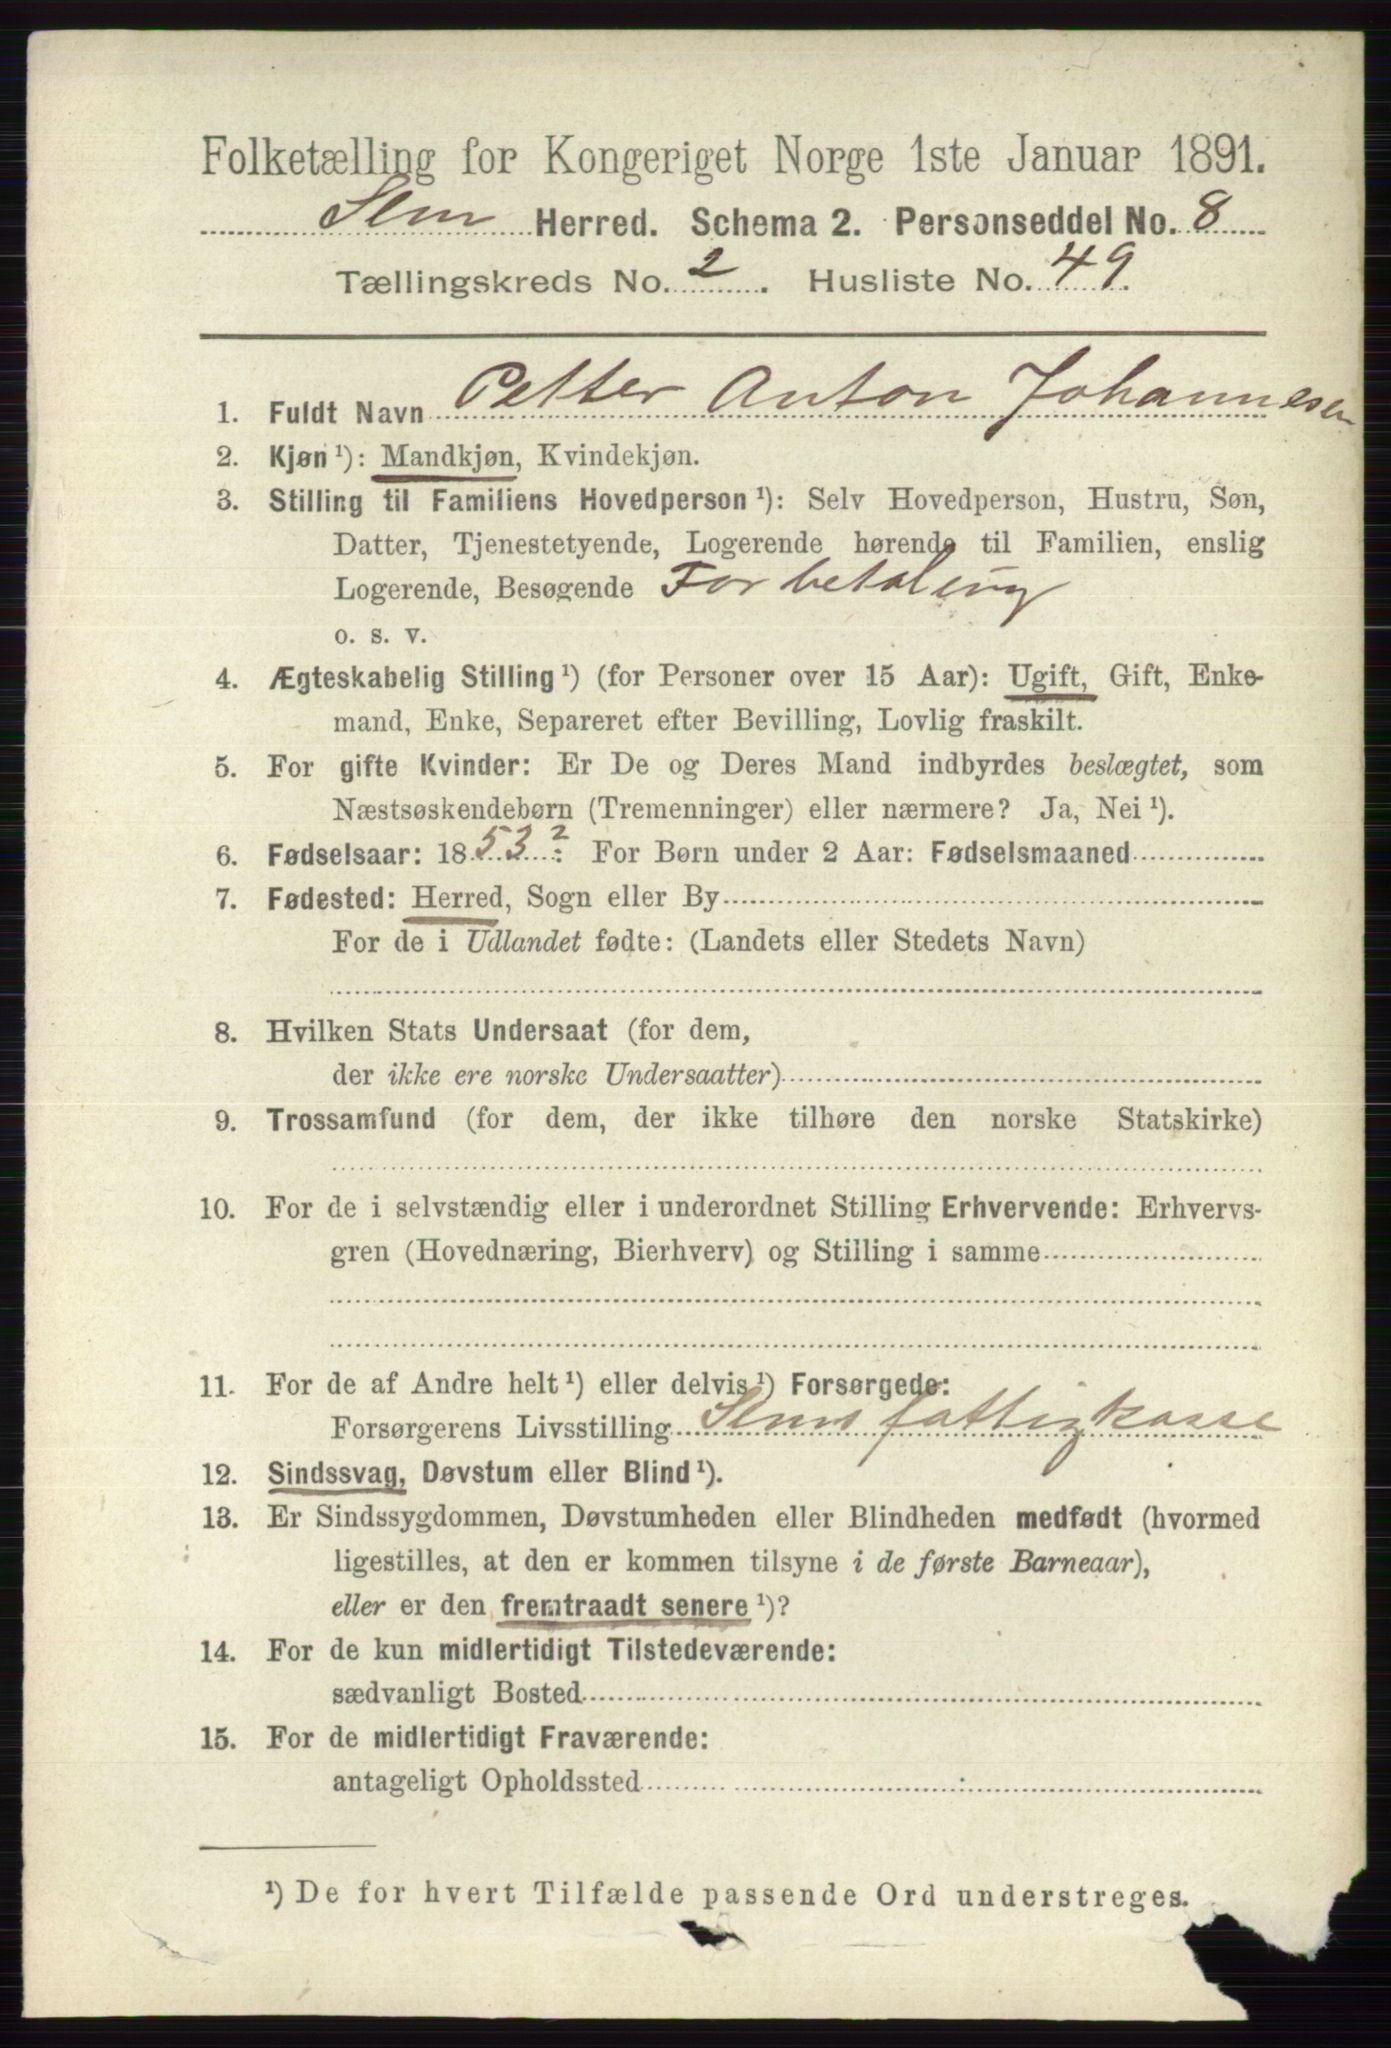 Folketælling for Kongeriget Norge 1ste Januar 1891.
Sem Herred. Schema 2. Personseddel No. 8
Tællingskreds No. 2. Husliste No. 49.
1. Fuldt Navn Petter Anton Johannesen
2. Kjøn ¹): Mandkjøn, Kvindekjøn.
3. Stilling til Familiens Hovedperson ¹): Selv Hovedperson, Hustru, Søn,
Datter, Tjenestetyende, Logerende hørende til Familien, enslig
Logerende, Besøgende For betaling
o. s. v.
4. Ægteskabelig Stilling ¹) (for Personer over 15 Aar): Ugift, Gift, Enke-
mand, Enke, Separeret efter Bevilling, Lovlig fraskilt.
5. For gifte Kvinder: Er De og Deres Mand indbyrdes beslægtet, som
Næstsøskendebørn (Tremenninger) eller nærmere? Ja, Nei ¹).
6. Fødselsaar: 1853?. For Børn under 2 Aar: Fødselsmaaned
7. Fødested: Herred, Sogn eller By
For de i Udlandet fødte: (Landets eller Stedets Navn)
8. Hvilken Stats Undersaat (for dem,
der ikke ere norske Undersaatter)
9. Trossamfund (for dem, der ikke tilhøre den norske Statskirke)
10. For de i selvstændig eller i underordnet Stilling Erhvervende: Erhvervs-
gren (Hovednæring, Bierhverv) og Stilling i samme
11. For de af Andre helt ¹) eller delvis ¹) Forsørgede:
Forsørgerens Livsstilling Sems fattigkasse
12. Sindssvag, Døvstum eller Blind ¹).
13. Er Sindssygdommen, Døvstumheden eller Blindheden medfødt (hvormed
ligestilles, at den er kommen tilsyne i de første Barneaar),
eller er den fremtraadt senere ¹)?
14. For de kun midlertidigt Tilstedeværende:
sædvanligt Bosted
15. For de midlertidigt Fraværende:
antageligt Opholdssted
¹) De for hvert Tilfælde passende Ord understreges.